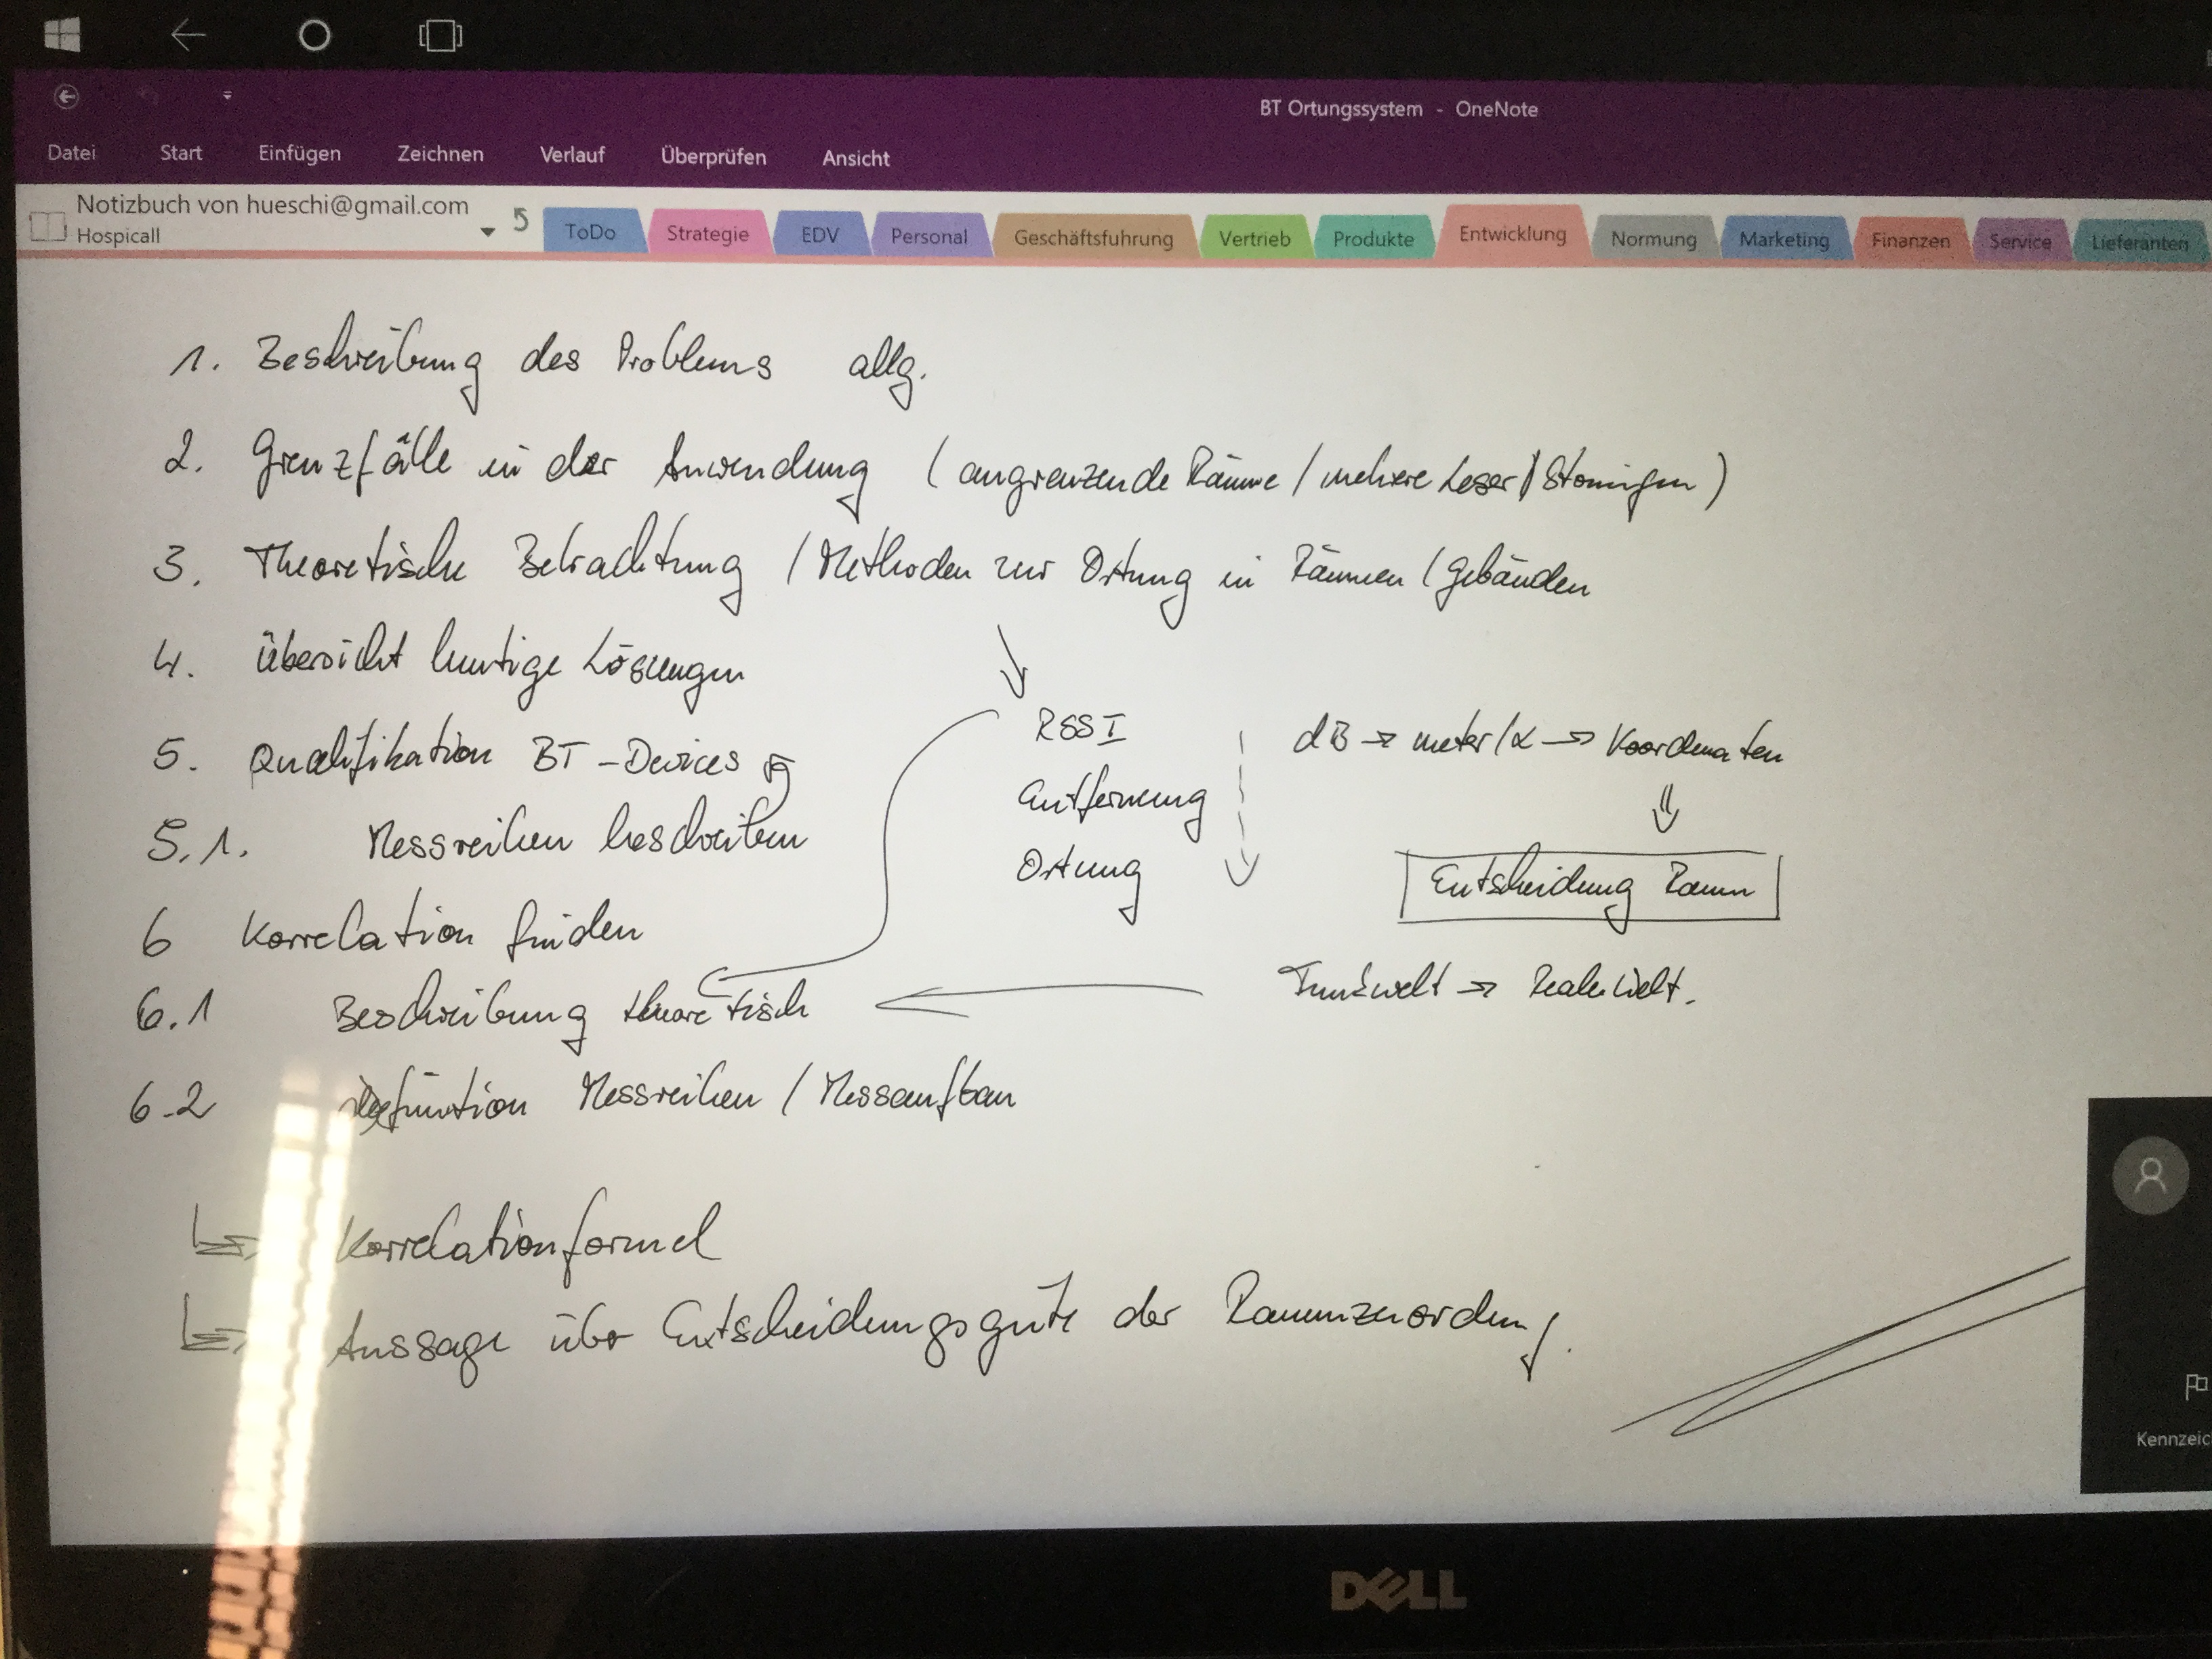 BT Ortungssystem - OneNote
Datei Start Einfügen Zeichnen Verlauf Überprüfen Ansicht
Notizbuch von hueschi@gmail.com
Hospicall
ToDo Strategie EDV Personal Geschäftsfuhrung Vertrieb Produkte Entwicklung Normung Marketing Finanzen Service Lieferanten
1. Beschreibung des Problems allg.
2. Grenzfälle in der Anwendung (angrenzende Räume / mehrere Leser / Störungen)
3. Theoretische Betrachtung / Methoden zur Ortung in Räumen / Gebäuden
4. Übersicht heutige Lösungen
5. Qualifikation BT-Devices
5.1. Messreihen beschreiben
6 Korrelation finden
6.1 Beschreibung theoretisch
6.2 Definition Messreihen / Messaufbau
Korrelationformel
Aussage über Entscheidungsgüte der Raumzuordnung.
RSSI
Entfernung
Ortung
dB → meter/α → Koordinaten
Entscheidung Raum
Funkwelt → Reale Welt.
Kennzeic
DELL